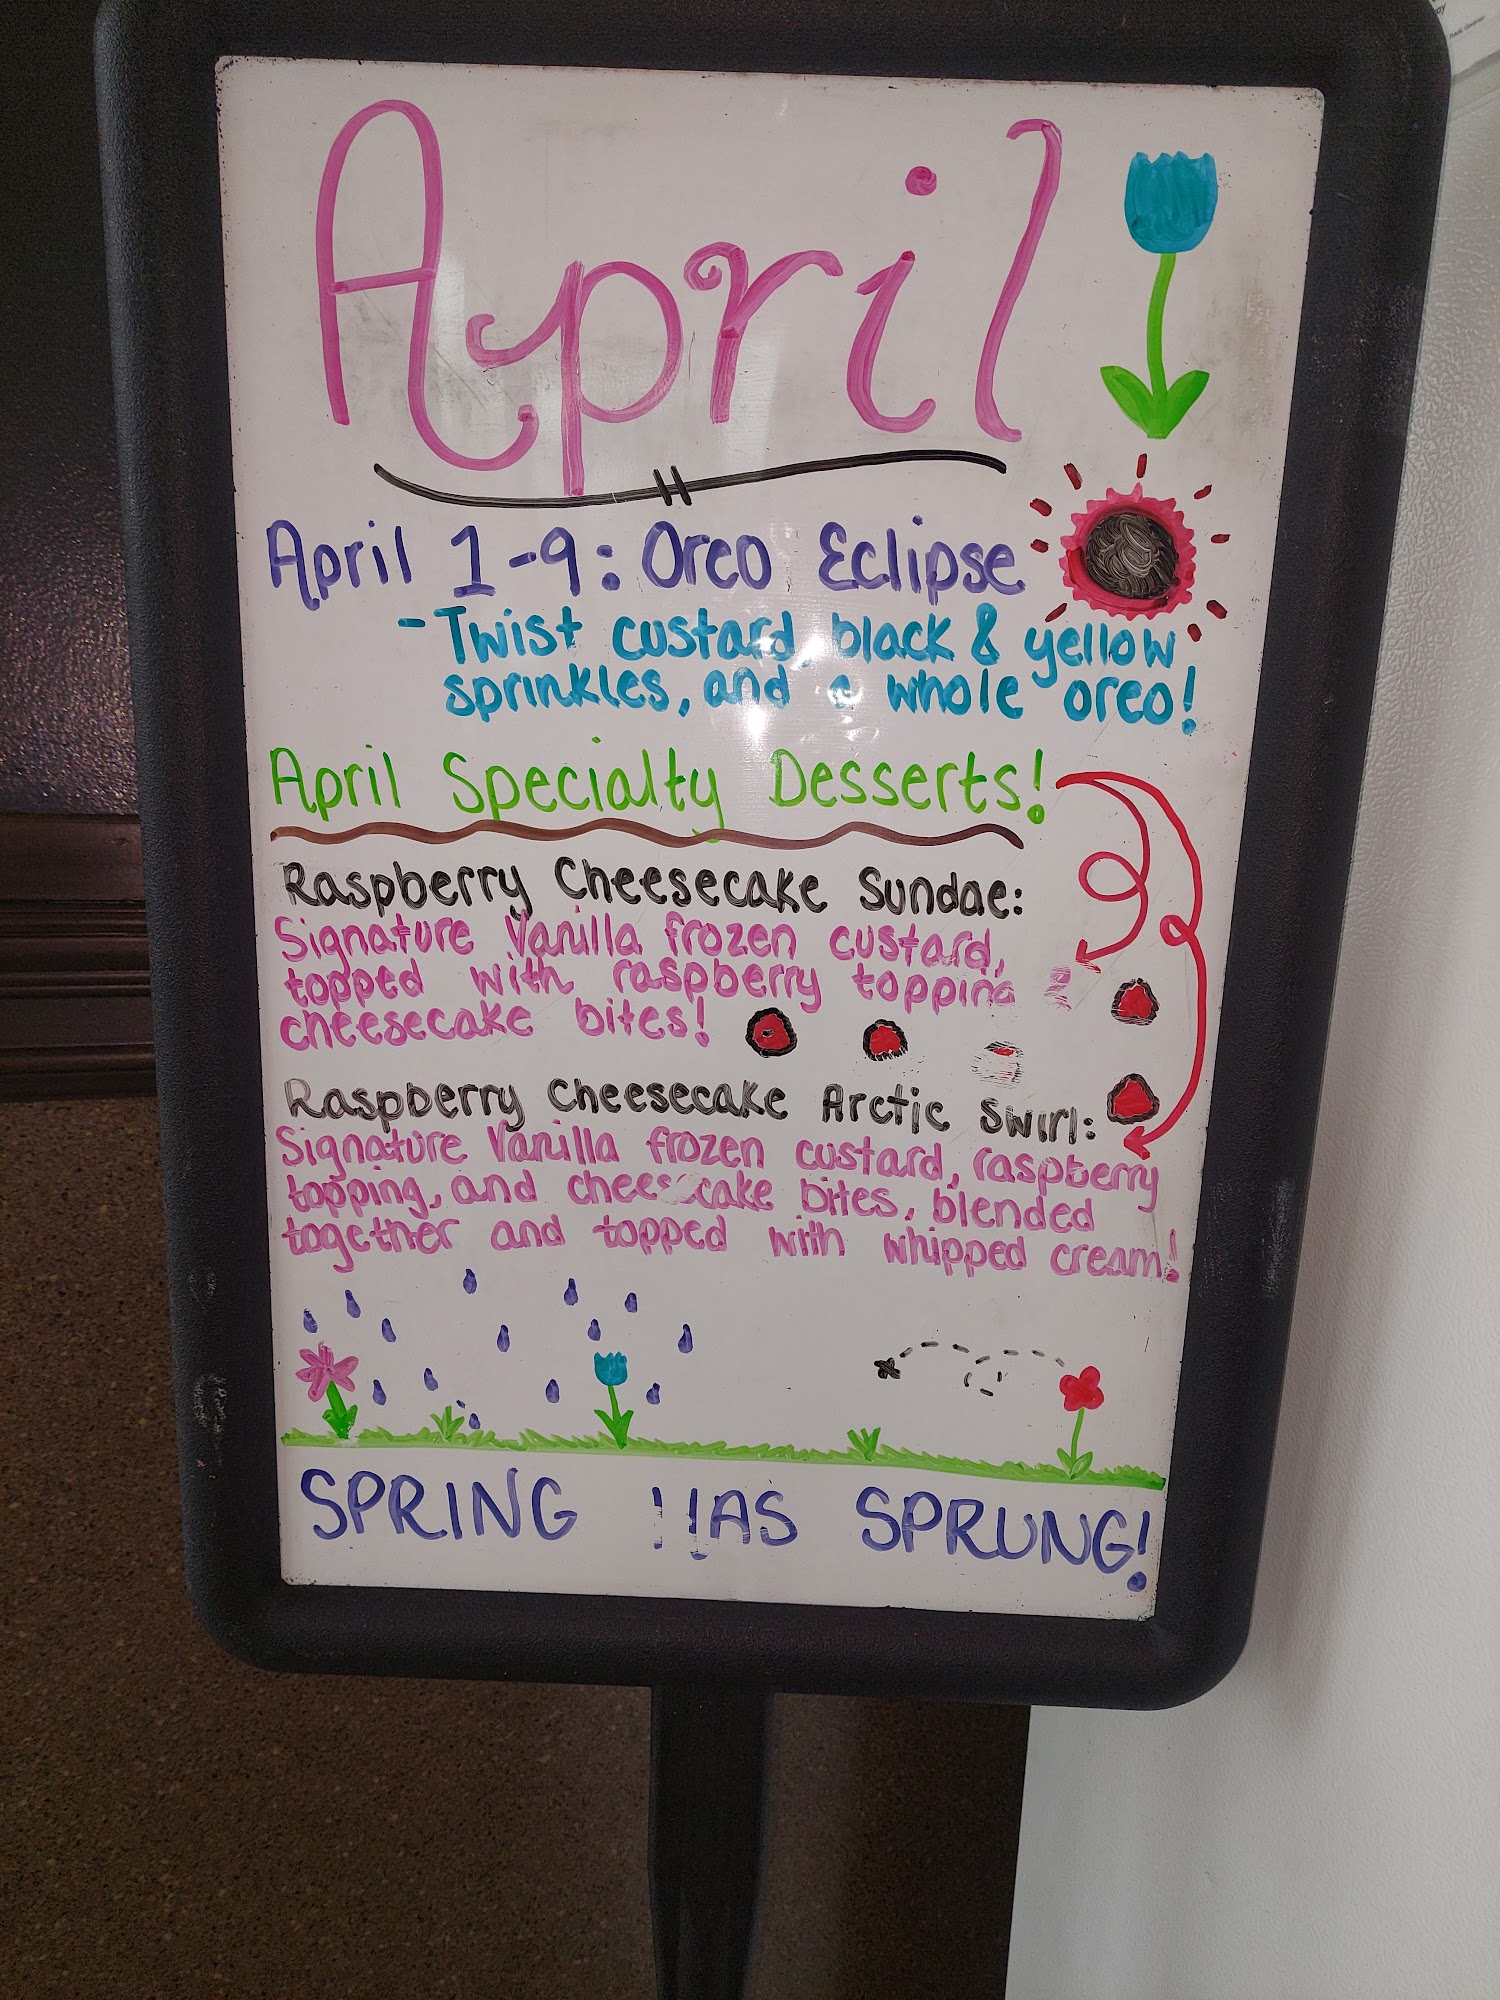 April
April 1-9: Oreo Eclipse
- Twist custard, black & yellow
sprinkles, and a whole oreo!
April Specialty Desserts!
Raspberry Cheesecake Sundae:
Signature Vanilla frozen custard,
topped with raspberry topping
cheesecake bites!
Raspberry Cheesecake Arctic Swirl:
Signature Vanilla frozen custard, raspberry
topping, and cheesecake bites, blended
together and topped with whipped cream!
SPRING HAS SPRUNG!